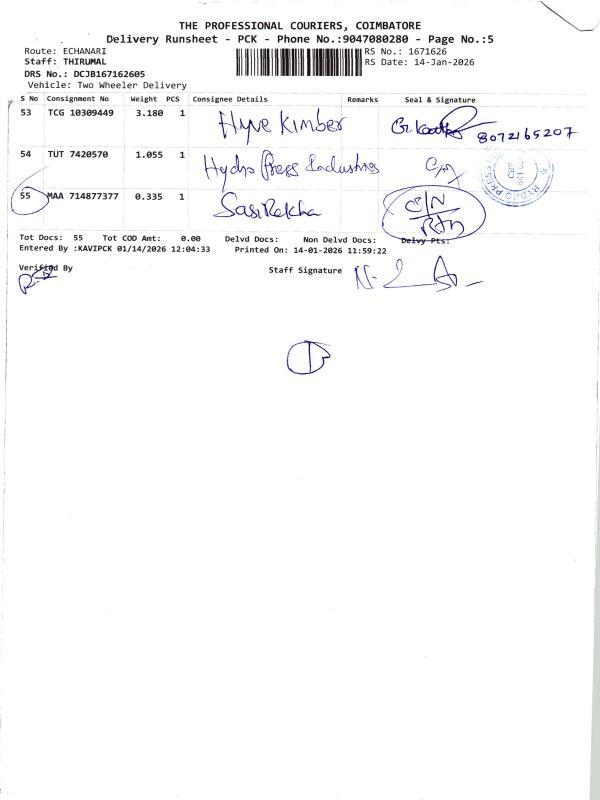 THE PROFESSIONAL COURIERS, COIMBATORE
Delivery Runsheet - PCK - Phone No.:9047080280 - Page No.:5
Route: ECHANARI RS No.: 1671626
Staff: THIRUMAL RS Date: 14-Jan-2026
DRS No.: DCJB167162605
Vehicle: Two Wheeler Delivery
S No Consignment No Weight PCS Consignee Details Remarks Seal & Signature
53 TCG 10309449 3.180 1 Hyve Kimber 8072165207
54 TUT 7420570 1.055 1 Hydro Press Industries
HYDRO PRESS
55 MAA 714877377 0.335 1 SasiRekha C/N
Rtn
Tot Docs: 55 Tot COD Amt: 0.00 Delvd Docs: Non Delvd Docs: Delvy Pts:
Entered By :KAVIPCK 01/14/2026 12:04:33 Printed On: 14-01-2026 11:59:22
Verified By Staff Signature